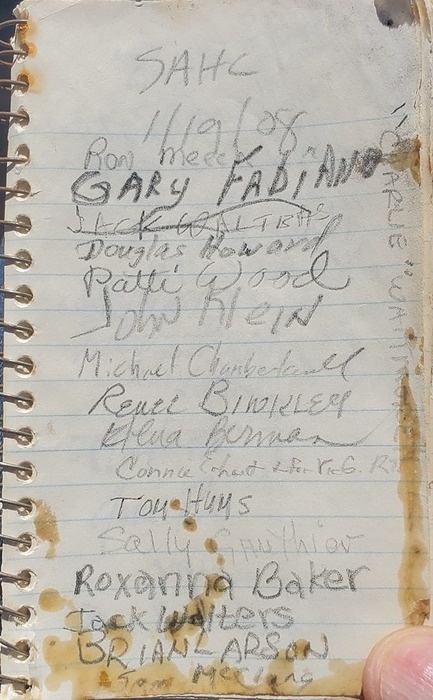 SAHC
1/19/08
Ron Meece
GARY FABIANO
JACK WALTERS
Douglas Howard
Patti Wood
John Klein
Michael Chamberlain
Renee BINKLEY
Berman
Connie
Tom
Sally Gauthier
Roxanna Baker
Jack Walters
BRIAN LARSON
Tom
CARLIE